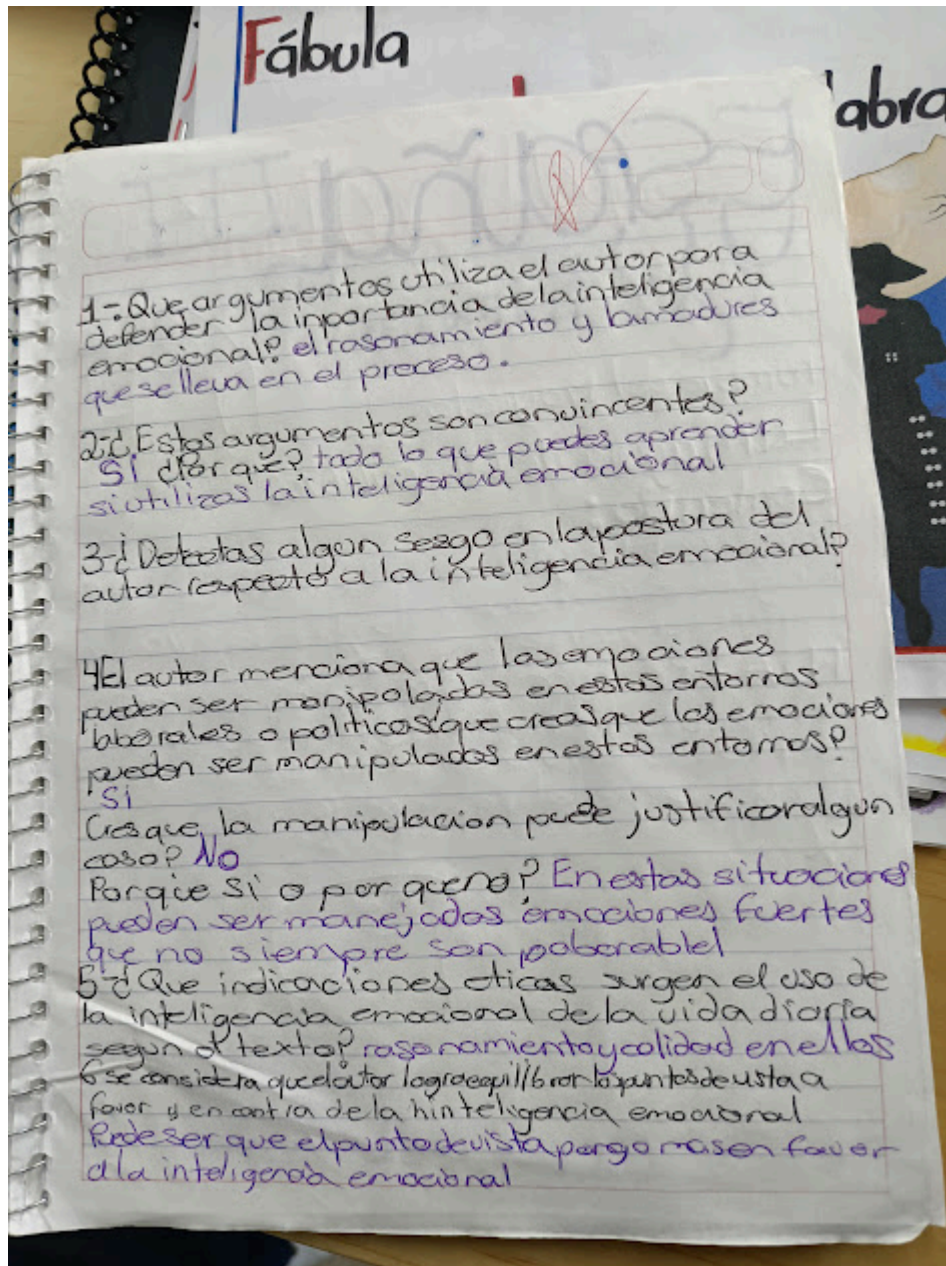 Fábula
abra
1-. Que argumentos utiliza el autor para
defender la inportancia de la inteligencia
emocional? el rasonamiento y lamadures
que se lleva en el preceso.
2-¿Estos argumentos son convincentes?
Si ¿Por que? todo lo que puedes aprender
si utilizas la inteligencia emocional
3-¿Detectas algun sesgo en la postura del
autor respecto a la inteligencia emocional?
4El autor menciona que las emociones
pueden ser manipoladas en estos entornos
laborales o politicos que creas que las emociones
pueden ser manipulados en estos entornos?
Si
Cres que la manipulacion puede justificar algun
caso? No
Porque si o por que no? En estas situaciones
pueden ser manejadas emociones fuertes
que no siempre son
5-¿Que indicaciones eticas surgen el uso de
la inteligencia emocional de la vida diaria
segun el texto? rasonamiento y calidad en ellos
6 se considera que el autor logra equilibrar los puntos de usta a
favor y en contra de la hinteligencia emocional
Puede ser que el punto de vista pongo mas en favor
a la inteligencia emocional